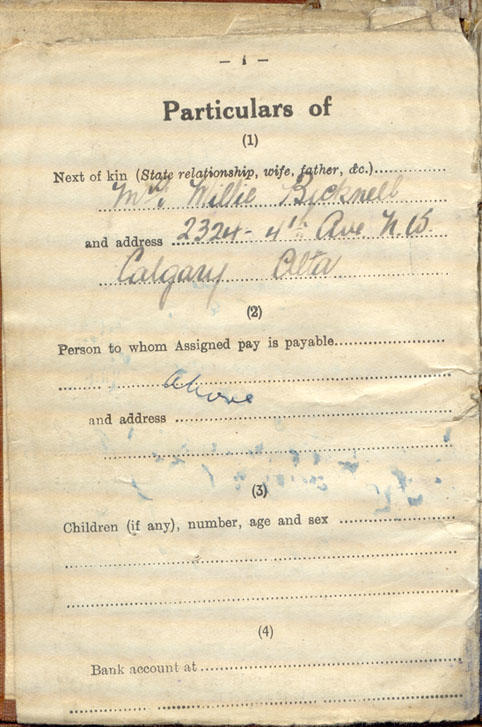 – 1 –
Particulars of
(1)
Next of kin (State relationship, wife, father, &c.)
Mrs. Willie Bicknell
and address 2324 - 4th Ave N.W.
Calgary Alta
(2)
Person to whom Assigned pay is payable
above
and address
(3)
Children (if any), number, age and sex
(4)
Bank account at